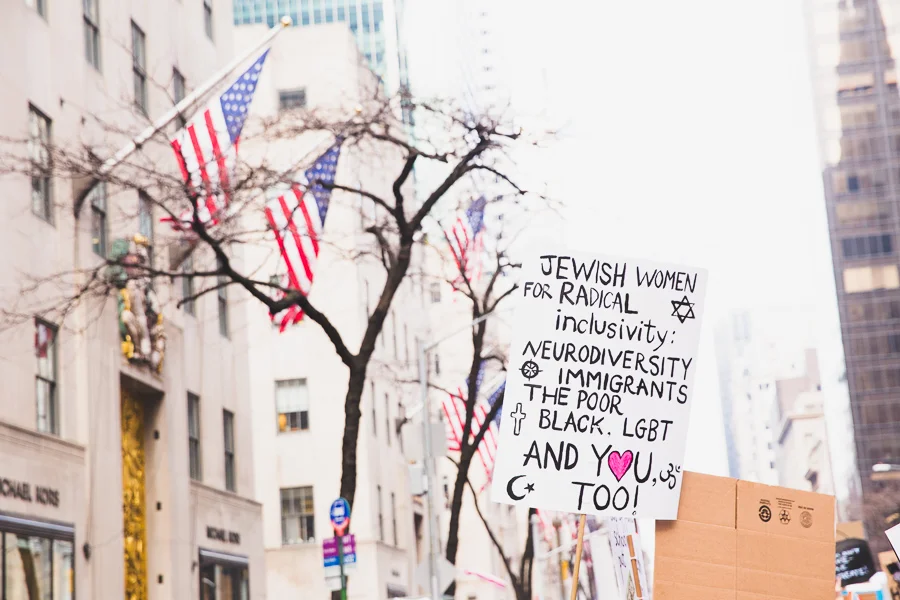 JEWISH WOMEN
FOR RADICAL
inclusivity:
NEURODIVERSITY
IMMIGRANTS
THE POOR
BLACK. LGBT
AND YOU,
TOO!
MICHAEL KORS
MICHAEL KORS